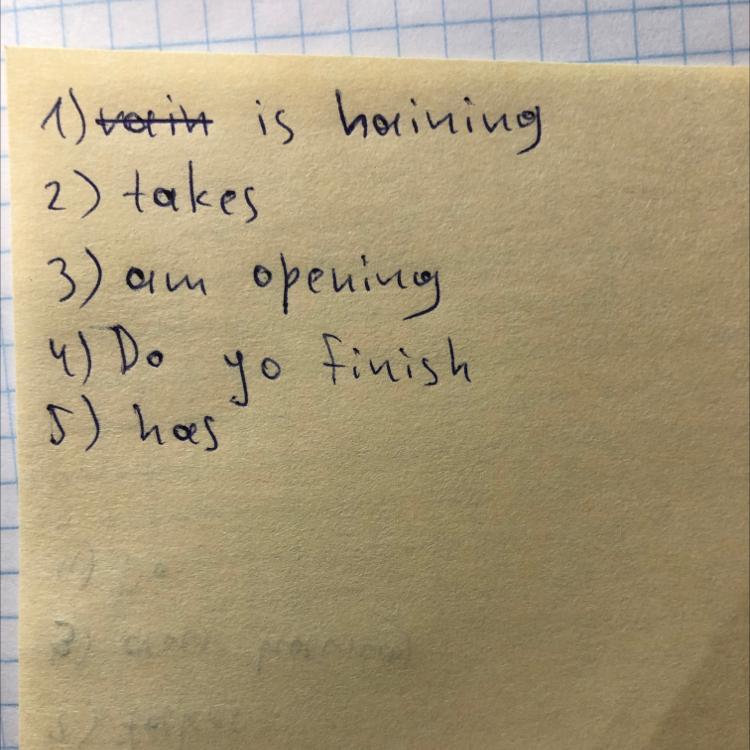 1) rain is haining
2) takes
3) am opening
4) Do yo finish
5) has